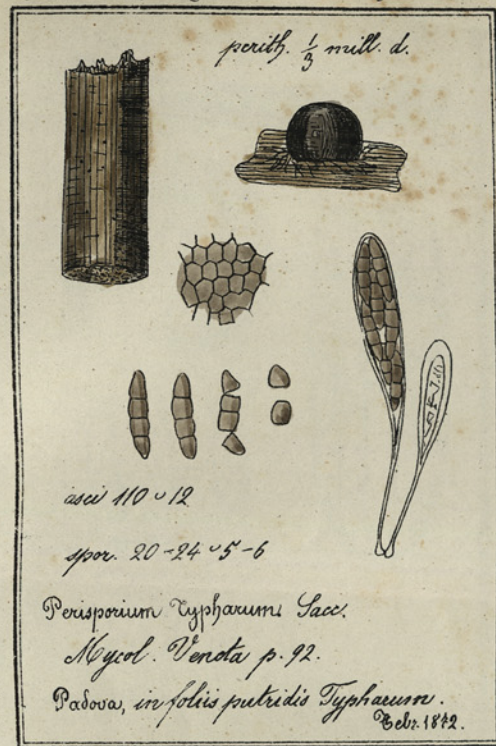 perith. 1/3 mill. d.
asci 110 ᴗ 12
spor. 20-24 ᴗ 5-6
Perisporium Typharum Sacc.
Mycol. Veneta p. 92.
Padova, in foliis putridis Typharum.
Febr. 1872.